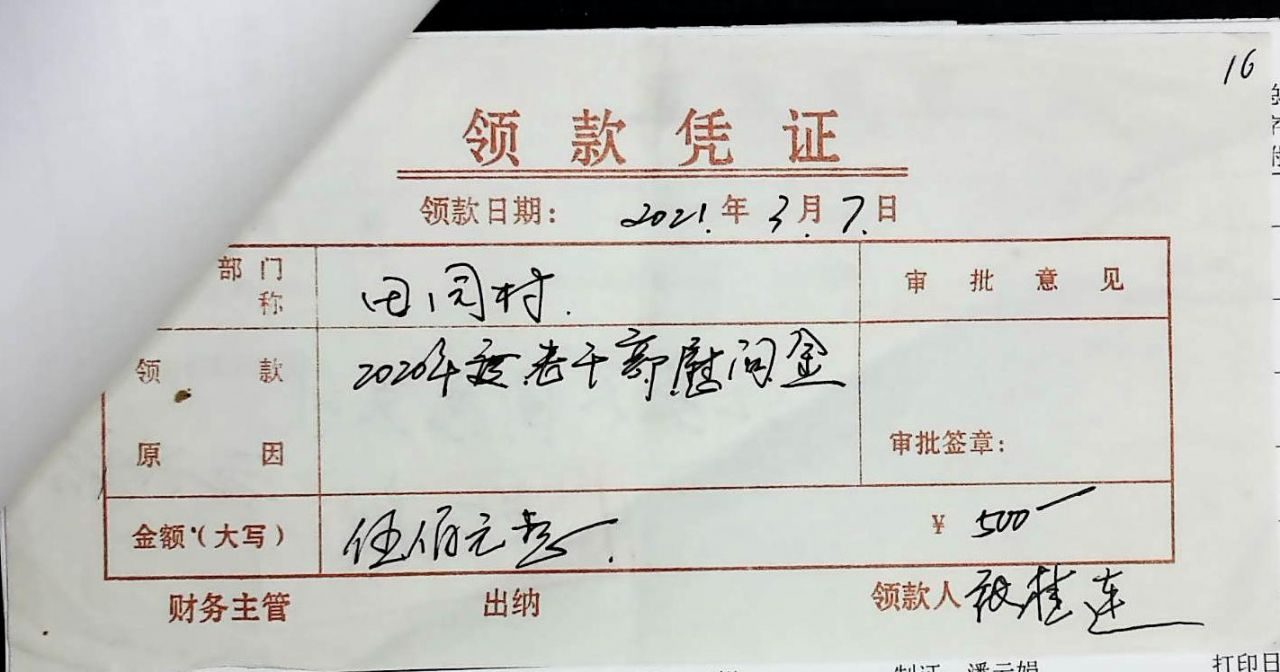 16
领款凭证
领款日期： 2021.年3月7.日
部门
称
村.
审批意见
领款
2020年度老干部慰问金
原因
审批签章：
金额（大写）
伍佰元整
¥ 500
财务主管 出纳 领款人 桂连
制证 潘云娟 打印日